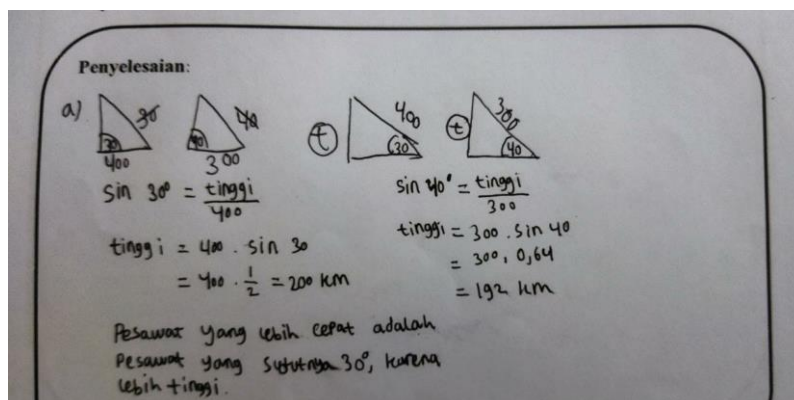 Penyelesaian:
a) 30 30 400
40 40 300
t 400 30
t 300 40
sin 30° = tinggi / 400
tinggi = 400 . sin 30
= 400 . 1/2 = 200 km
sin 40° = tinggi / 300
tinggi = 300 . sin 40
= 300 . 0,64
= 192 km
Pesawat yang lebih cepat adalah
Pesawat yang sututnya 30°, karena
lebih tinggi.